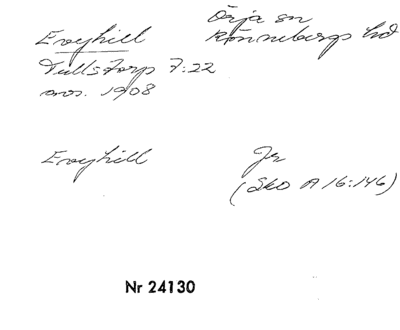 Örja sn
Eveshill Rönnebergs hd
Tullstorp 7:22
avs. 1908
Eveshill Jr
(Sko A 16:146)
Nr 24130